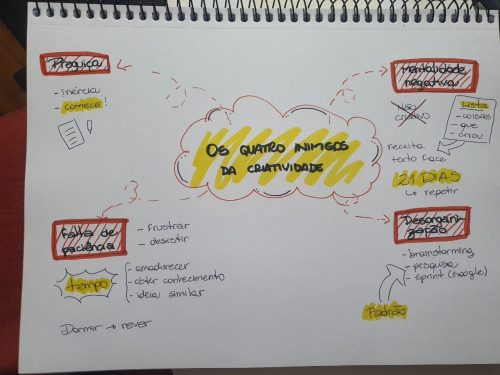 OS QUATRO INIMIGOS
DA CRIATIVIDADE
Preguiça
- Inércia
- comece!
Mentalidade
negativa
Não
criativo
Lista
- coisas
- que
- criou
receita
texto face
21 DIAS
↳ repetir
Falta de
paciência
- frustrar
- desistir
tempo
- amadurecer
- obter conhecimento
- ideia similar
Dormir → rever
Desorgani
zação
- brainstorming
- pesquisa
- sprint (Google)
Padrão